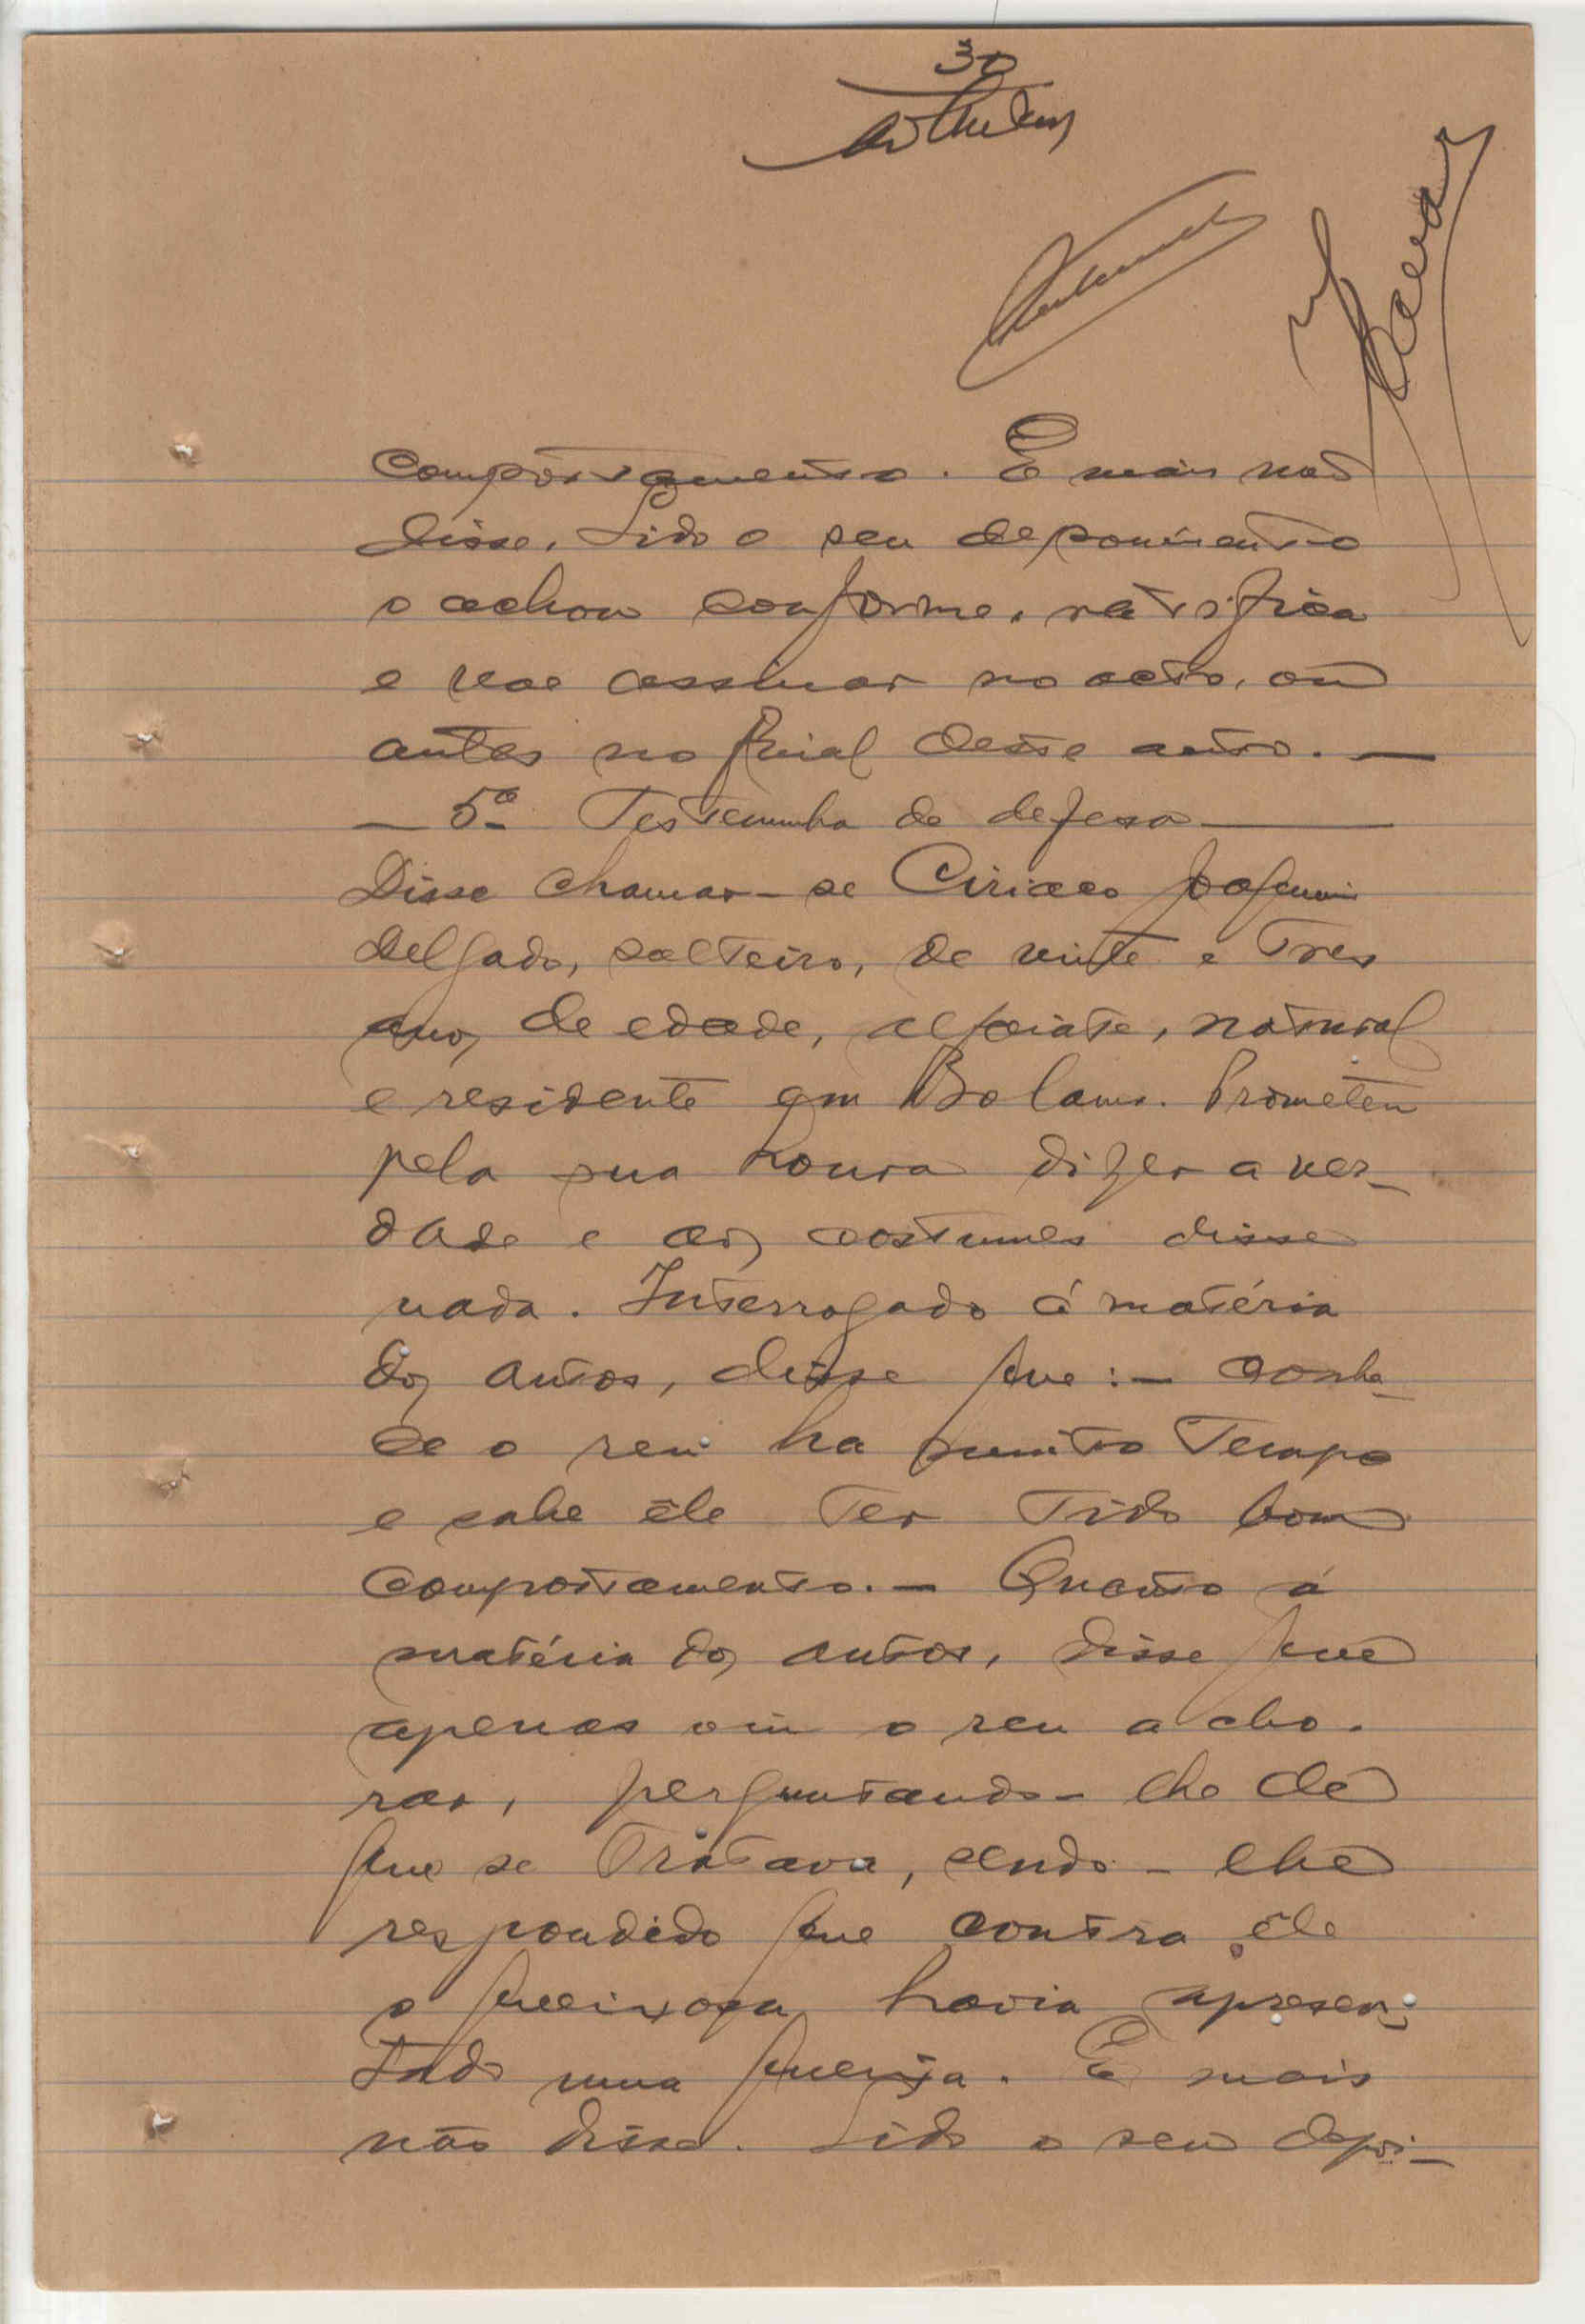 30
comportamento. E mais não
disse. Lido o seu depoimento
o achou conforme, ratifica
e vae assinar no acto, ou
antes no final deste auto. —
— 5ª Testemunha de defesa —
Disse chamar-se Ciriaco Joaquim
Delgado, solteiro, de vinte e tres
anos de edade, alfaiate, natural
e residente em Bolama. Prometeu
pela sua honra dizer a ver-
dade e aos costumes disse
nada. Interrogado á matéria
dos autos, disse que:— conhe-
ce o reu ha muito tempo
e sabe êle ter tido bom
comportamento.— Quanto á
matéria dos autos, disse que
apenas viu o reu a cho-
rar, perguntando-lhe de
que se tratava, sendo-lhe
respondido que contra êle
o queixoso havia apresen-
tado uma queixa. E mais
não disse. Lido o seu depoi-